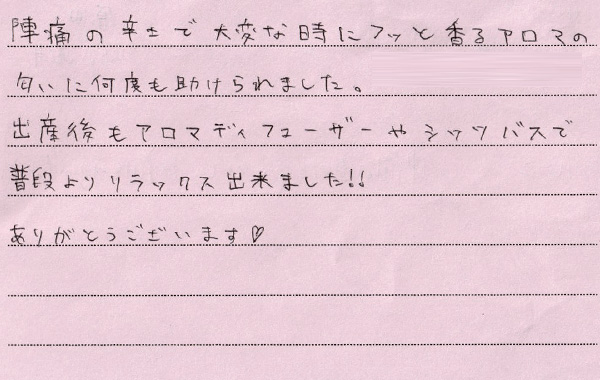 陣痛の辛さで大変な時にフッと香るアロマの
匂いに何度も助けられました。
出産後もアロマディフューザーやシッツバスで
普段よりリラックス出来ました!!
ありがとうございます♡